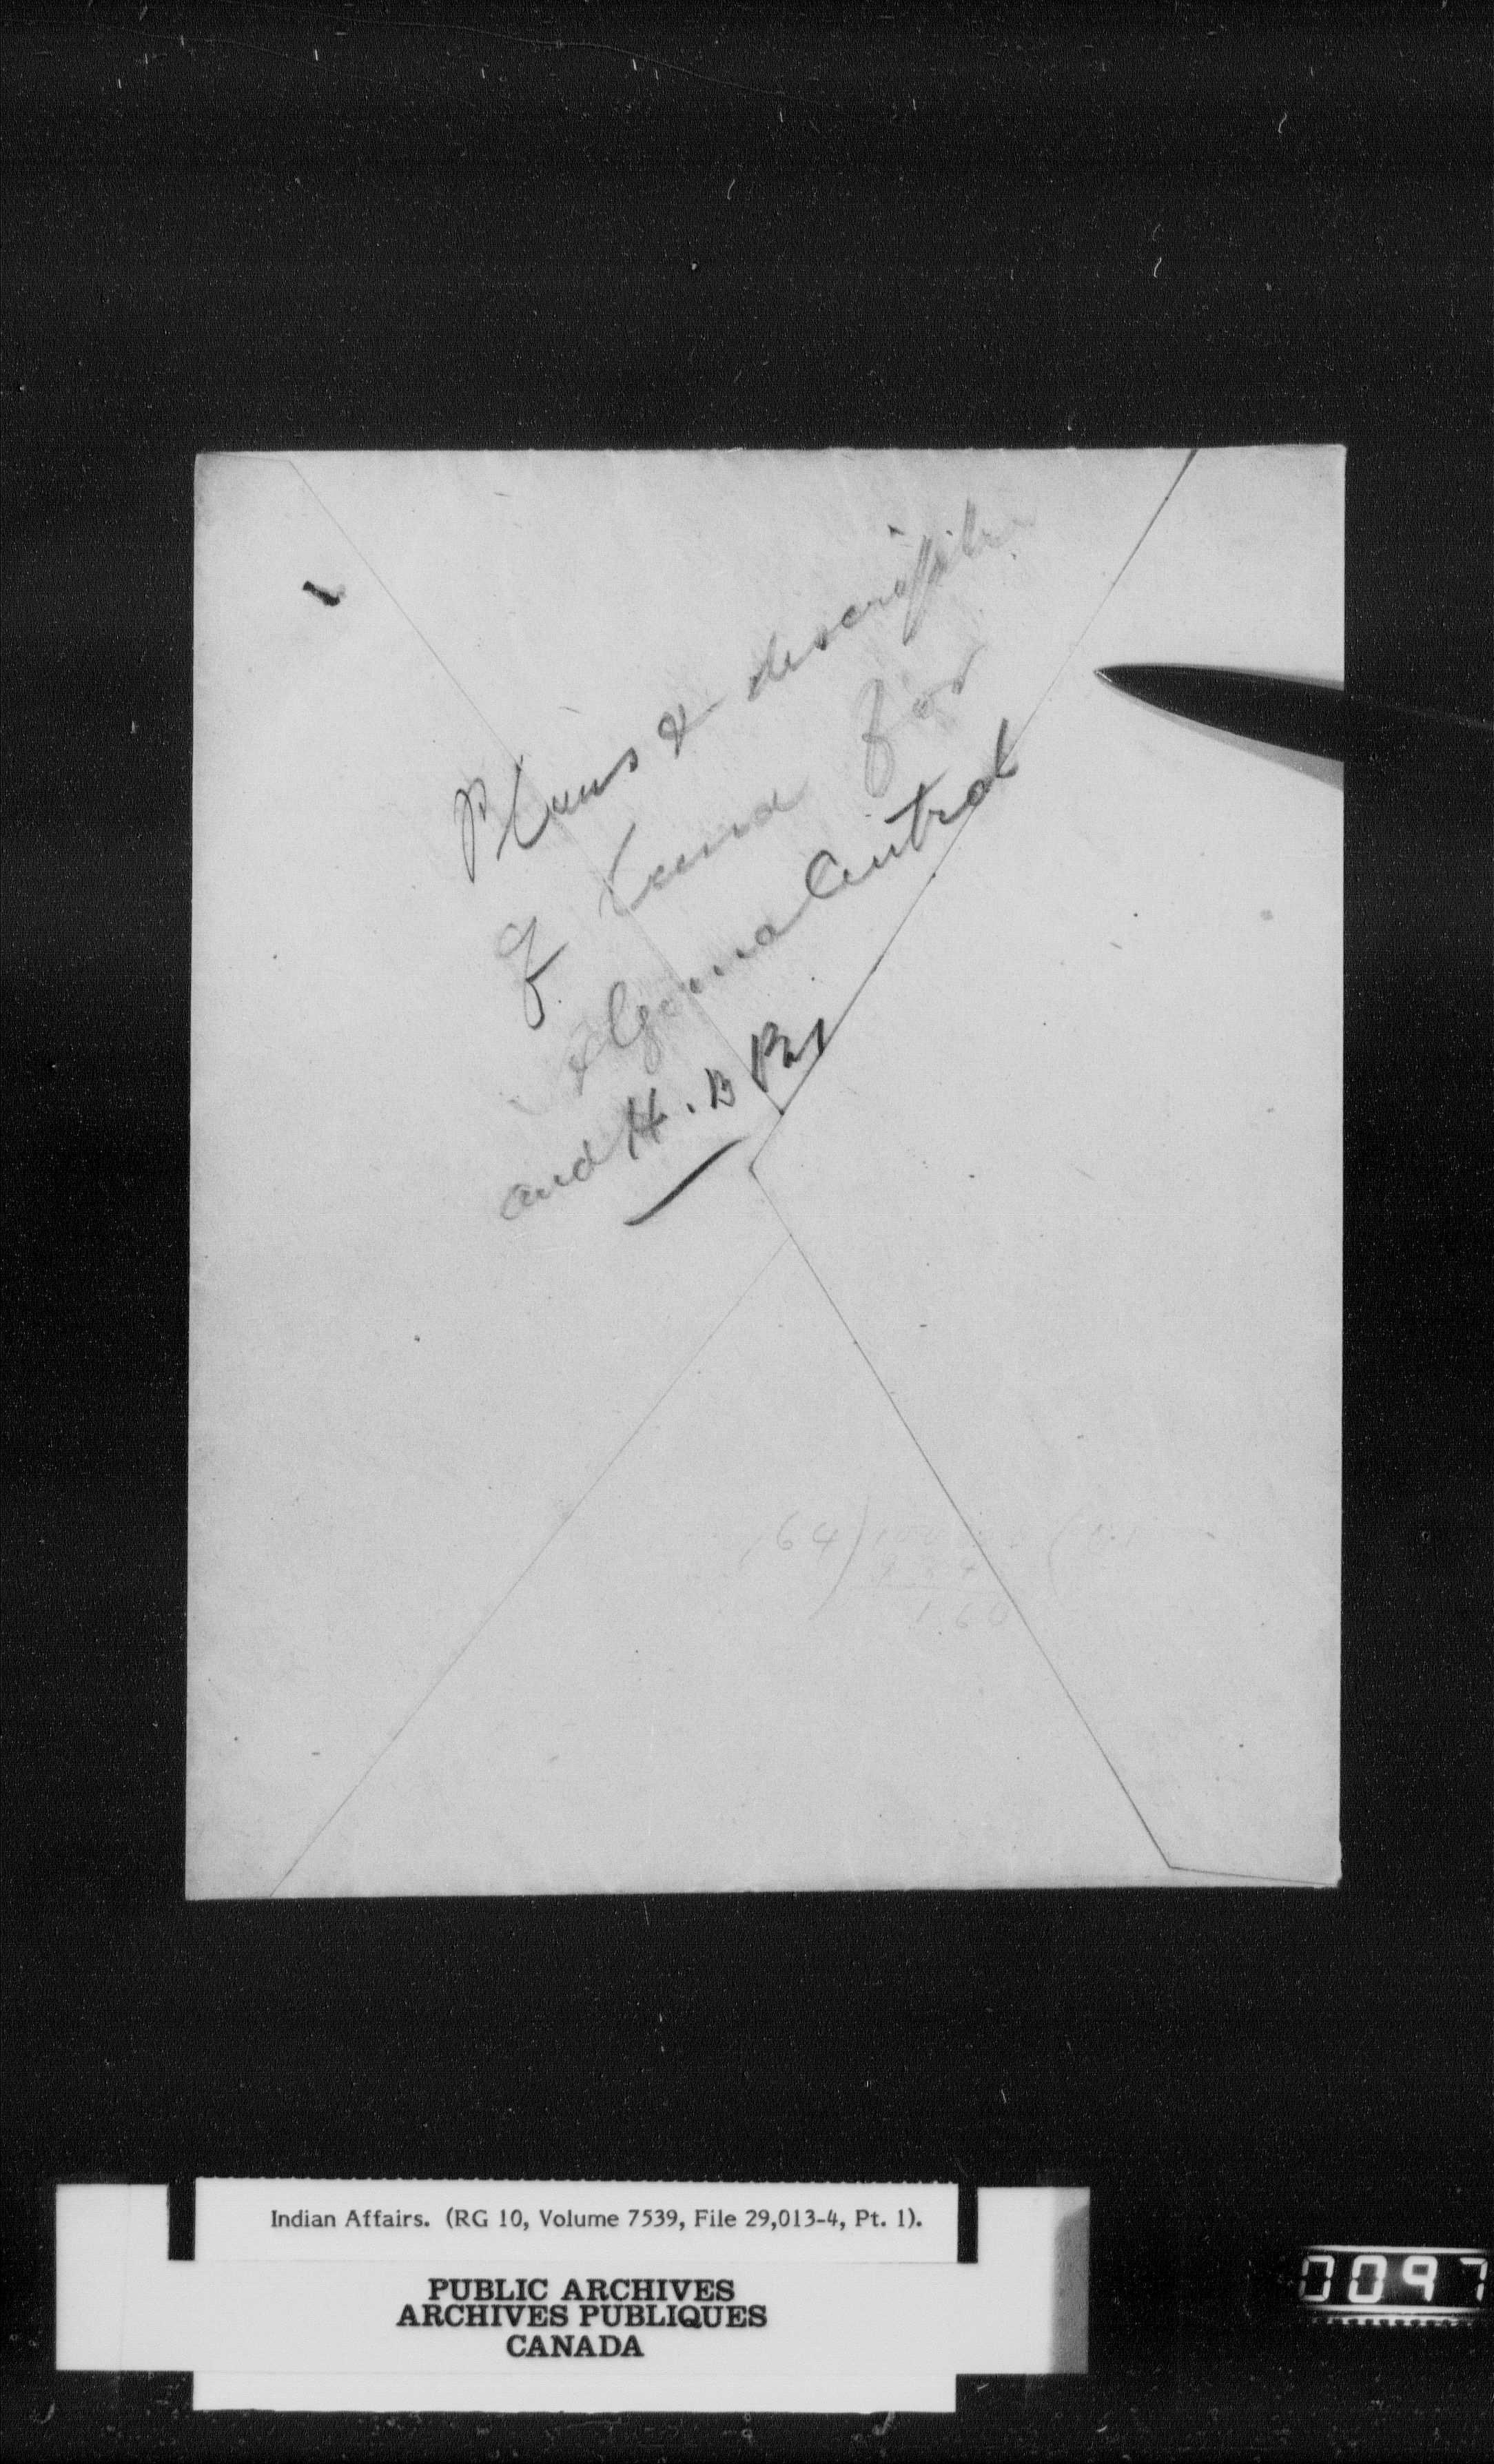 Plans & description
of Land for
Algoma Central
and H. B Ry
164)
160
Indian Affairs. (RG 10, Volume 7539, File 29,013-4, Pt. 1).
PUBLIC ARCHIVES
ARCHIVES PUBLIQUES
CANADA
0097